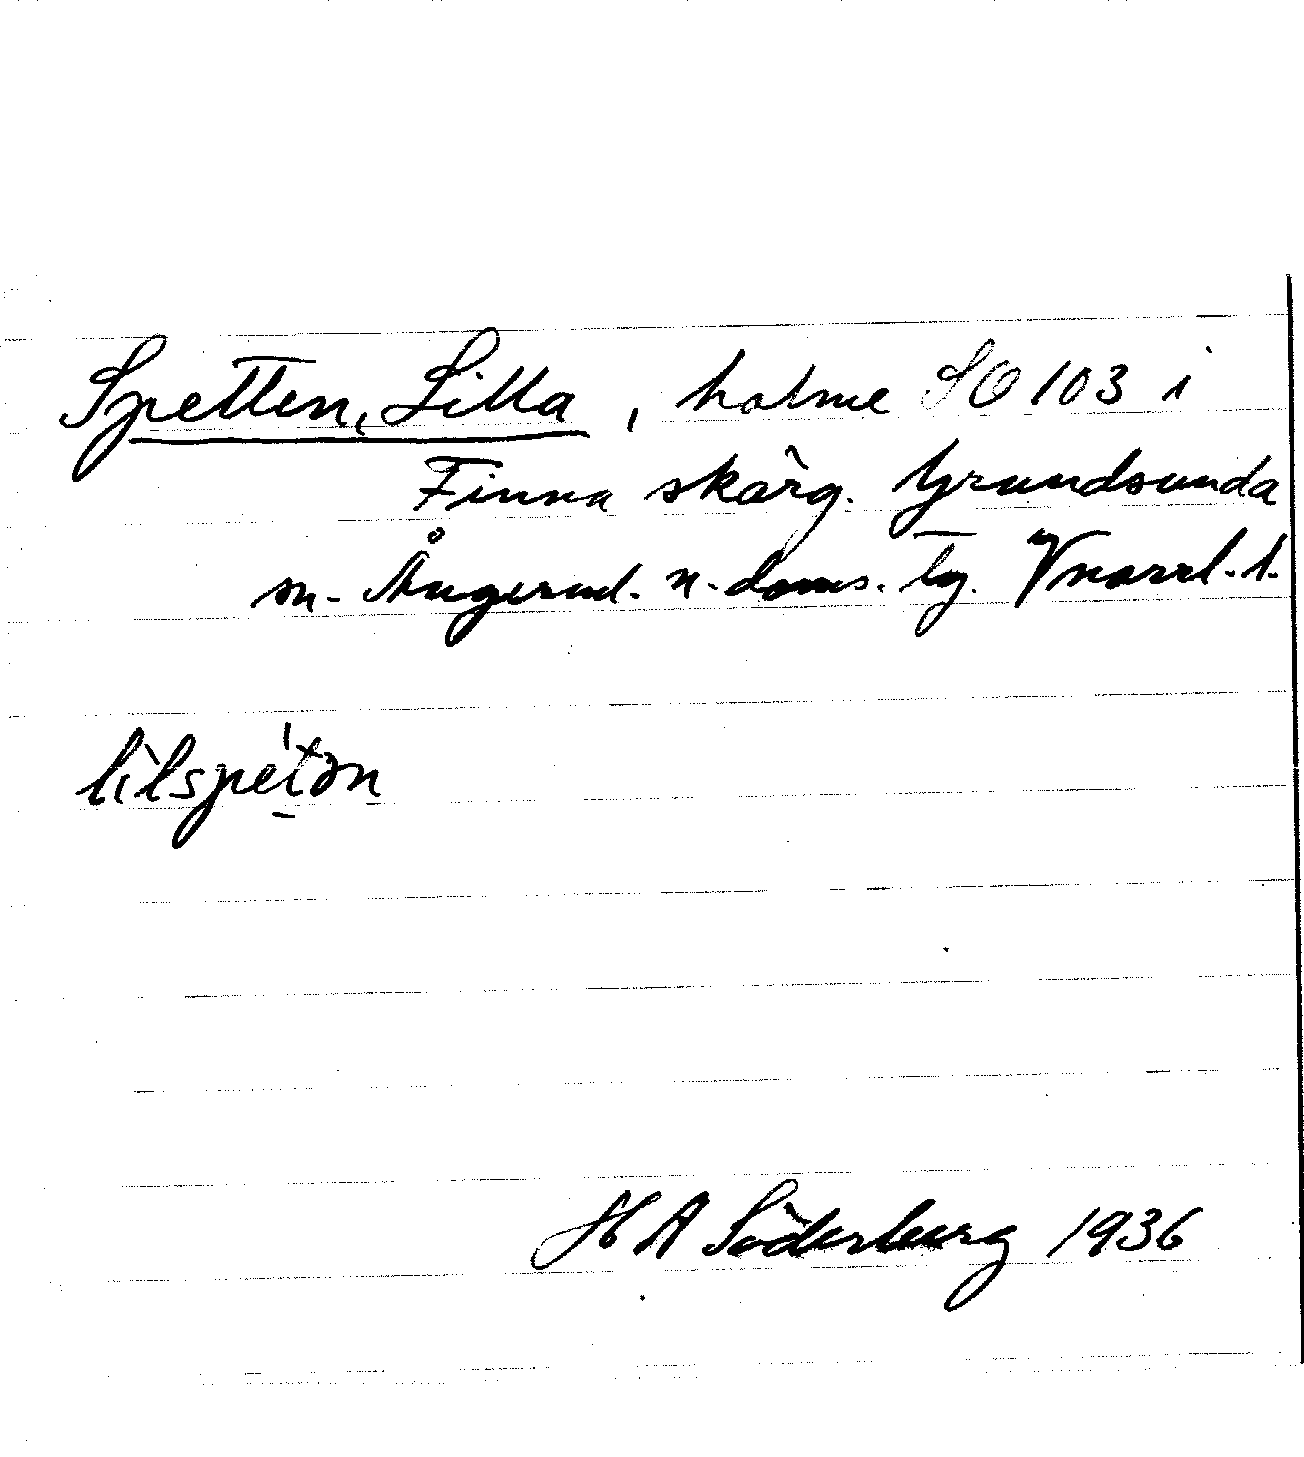 Spetten, Lilla, holme SO 103 i
Finna skärg. Grundsunda
sn. Ångerml. n. doms. tg. Vnorrl. l.
lìlspét̠ən
H A Söderburg 1936